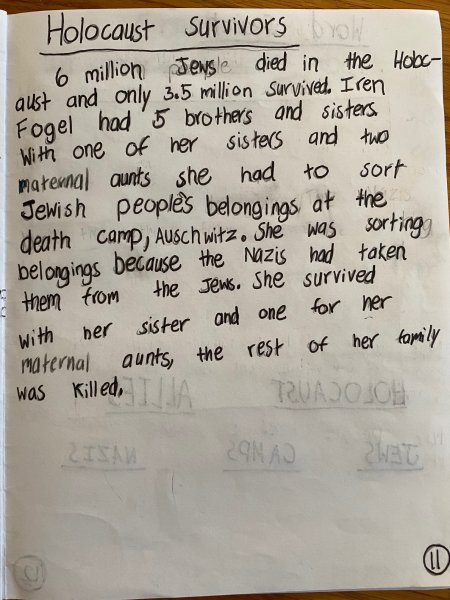 Holocaust Survivors
6 million Jews died in the Holoc-
aust and only 3.5 million survived. Iren
Fogel had 5 brothers and sisters.
With one of her sisters and two
maternal aunts she had to sort
Jewish people's belongings at the
death camp, Auschwitz. She was sorting
belongings because the Nazis had taken
them from the Jews. She survived
with her sister and one for her
maternal aunts, the rest of her family
was killed.
HOLOCAUST ALLIES
JEWS CAMPS NAZIS
11
12